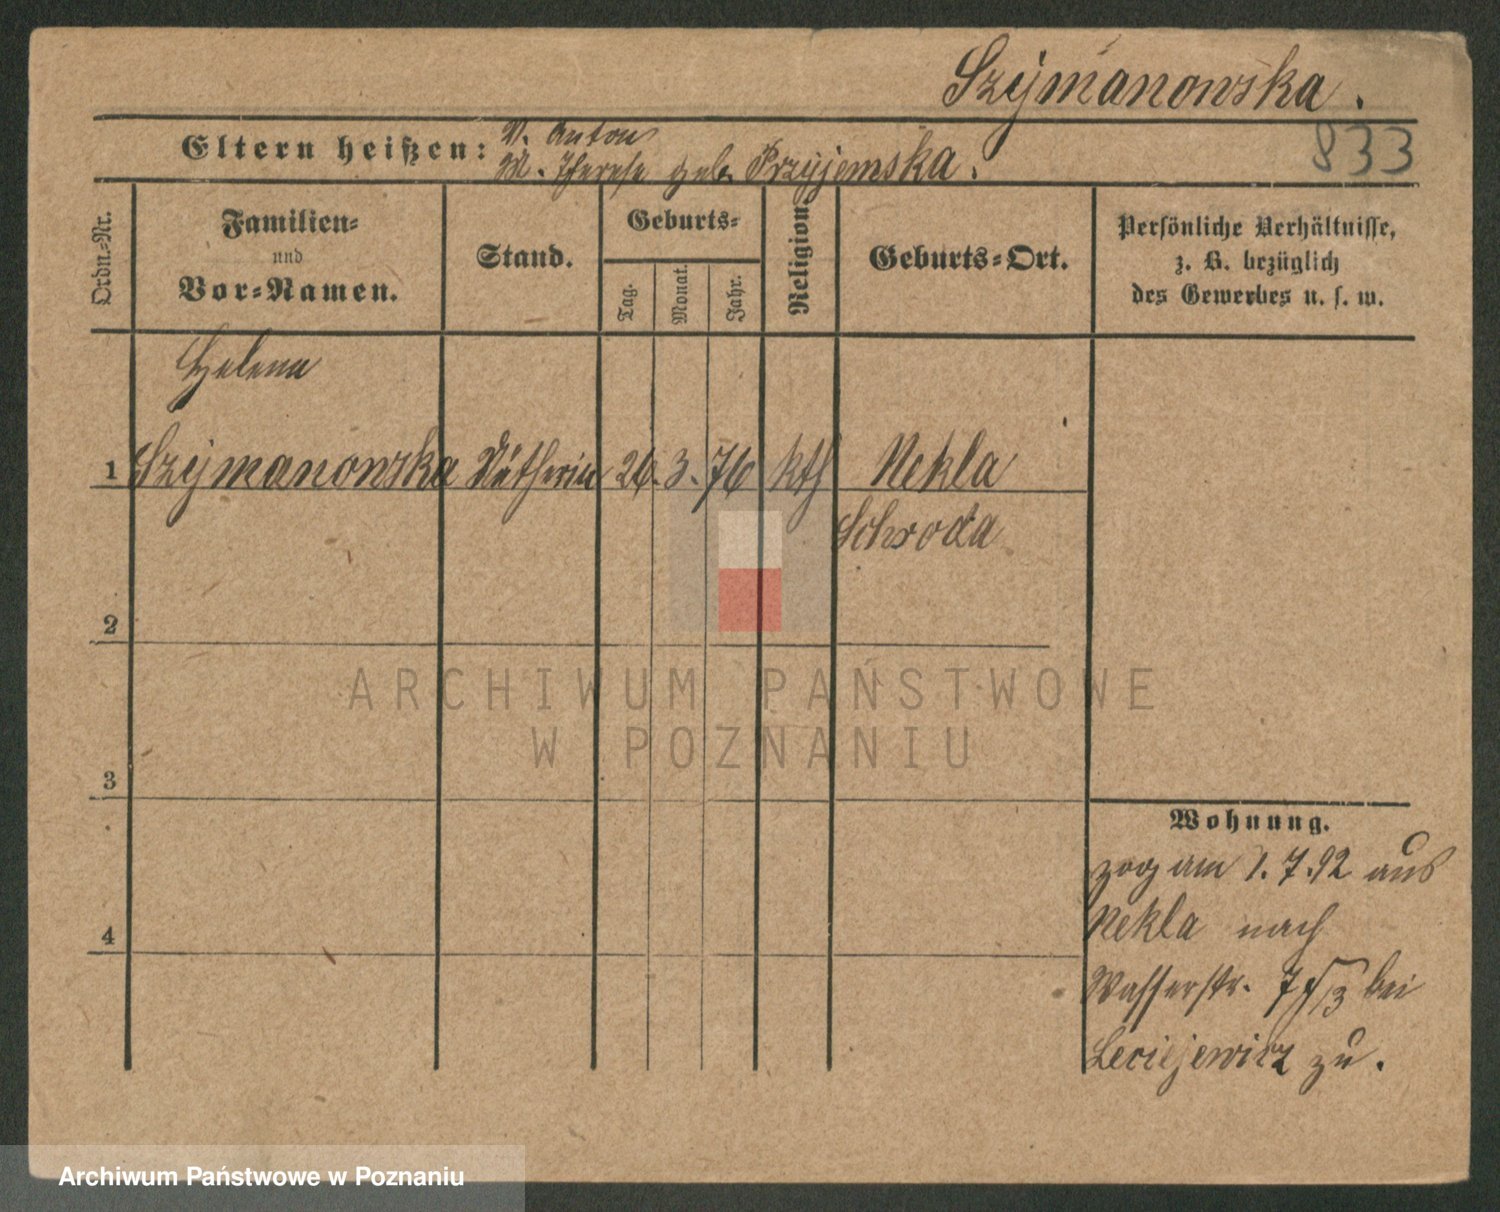 Szymanowska.
833
Eltern heißen: V. Anton
M. Therese geb. Przyjemska.
Ordn.-Nr.
Familien- und Vor-Namen.
Stand.
Geburts-
Tag.
Monat.
Jahr.
Religion.
Geburts-Ort.
Persönliche Verhältnisse,
z. B. bezüglich
des Gewerbes u. s. w.
Helena
1 Szymanowska Nätherin 26. 3. 76 kth Nekla
Schroda
2
ARCHIWUM PAŃSTWOWE
W POZNANIU
3
Wohnung.
zog am 1. 7. 92 aus
Nekla nach
4
Wasserstr. 7 bei
Leciejewicz zu.
Archiwum Państwowe w Poznaniu